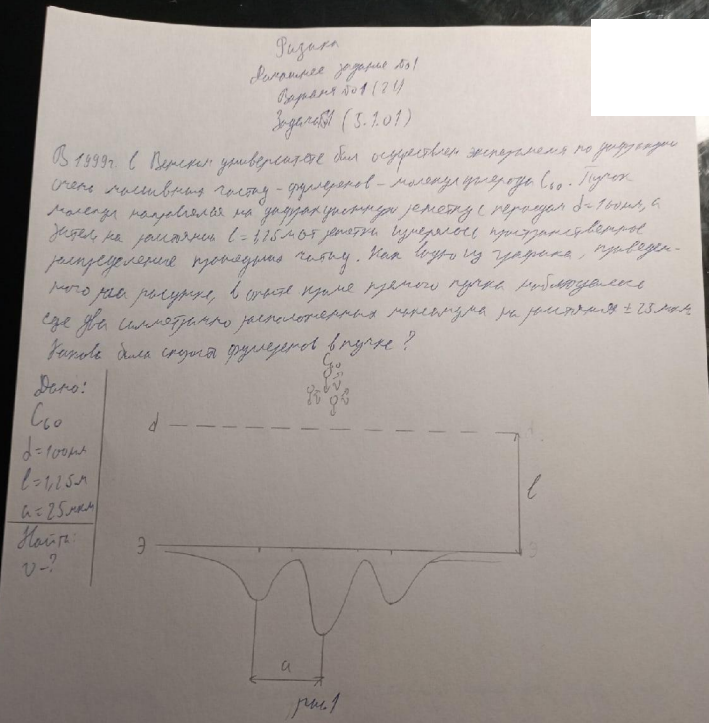 Физика
Домашнее задание №1
Вариант №1 (21)
Задача (5.1.01)
В 1999г. в Венском университете был осуществлен эксперимент по дифракции
очень массивных частиц - фуллеренов - молекул углерода C60. Пучок
молекул направлялся на дифракционную решетку с периодом d=100нм, а
затем, на расстоянии l=1,25м от решетки измерялось пространственное
распределение прошедших частиц. Как видно из графика, приведен-
ного на рисунке, в опыте кроме прямого пучка наблюдалось
еще два симметрично расположенных максимума на расстоянии ±25 мкм.
Какова была скорость фуллеренов в пучке?
Дано:
C60
d=100нм
l=1,25м
a=25мкм
Найти:
v-?
C60
d
l
Э
a
рис.1